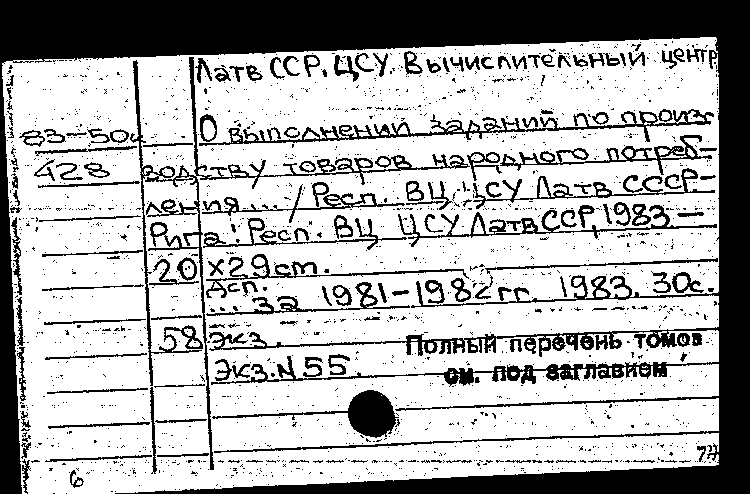 Латв ССР. ЦСУ. Вычислительный центр
83-50
428
О выполнении заданий по произ-
водству товаров народного потреб-
ления... / Респ. ВЦ ЦСУ Латв СССР-
Рига: Респ. ВЦ ЦСУ Латв ССР, 1983 —
20 x 29 cm.
Дсп.
... за 1981-1982 гг. 1983. 30с.
58 экз.
Экз. N 55.
Полный перечень томов
см. под заглавием
6